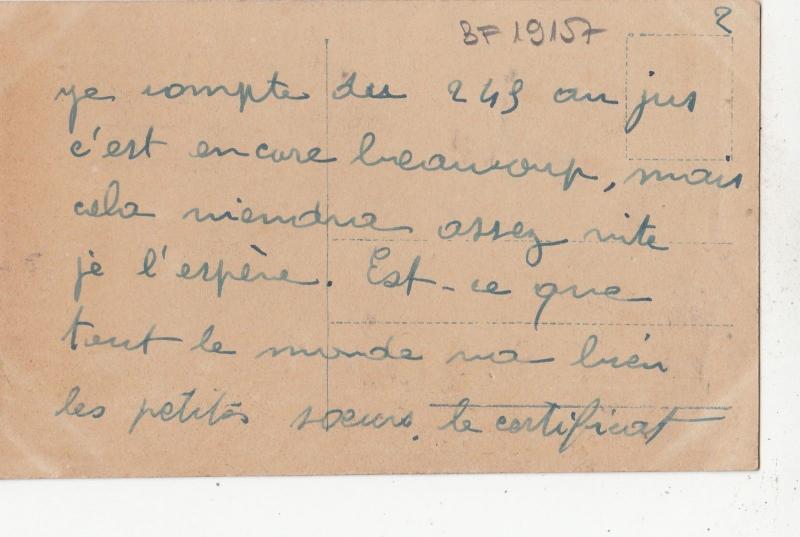 2
BF 19157
je compte du 249 au jus
c'est encore beaucoup, mais
cela viendra assez vite
je l'espère. Est-ce que
tout le monde va bien
les petites sœurs. le certificat